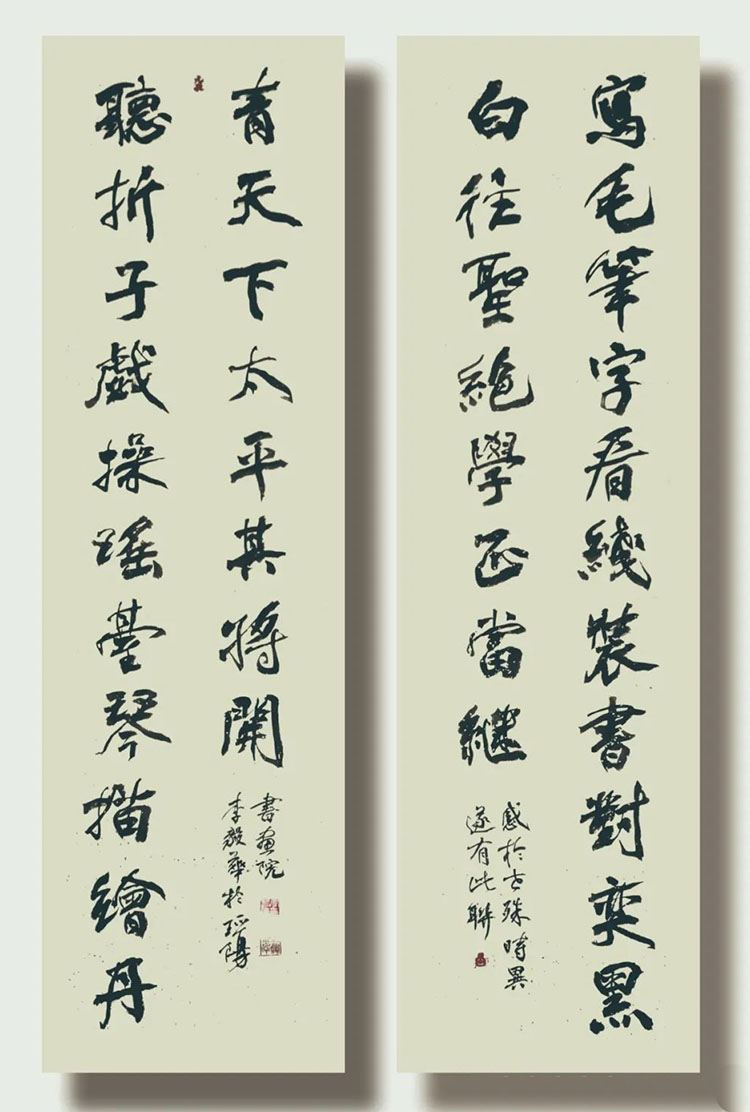 寫毛筆字看綫裝書對奕黑
白往聖絕學正當繼
感於古殊時異
遂有此聯
聽折子戲操瑤臺琴描繪丹
青天下太平其將開
書畫院
李毅華於陽